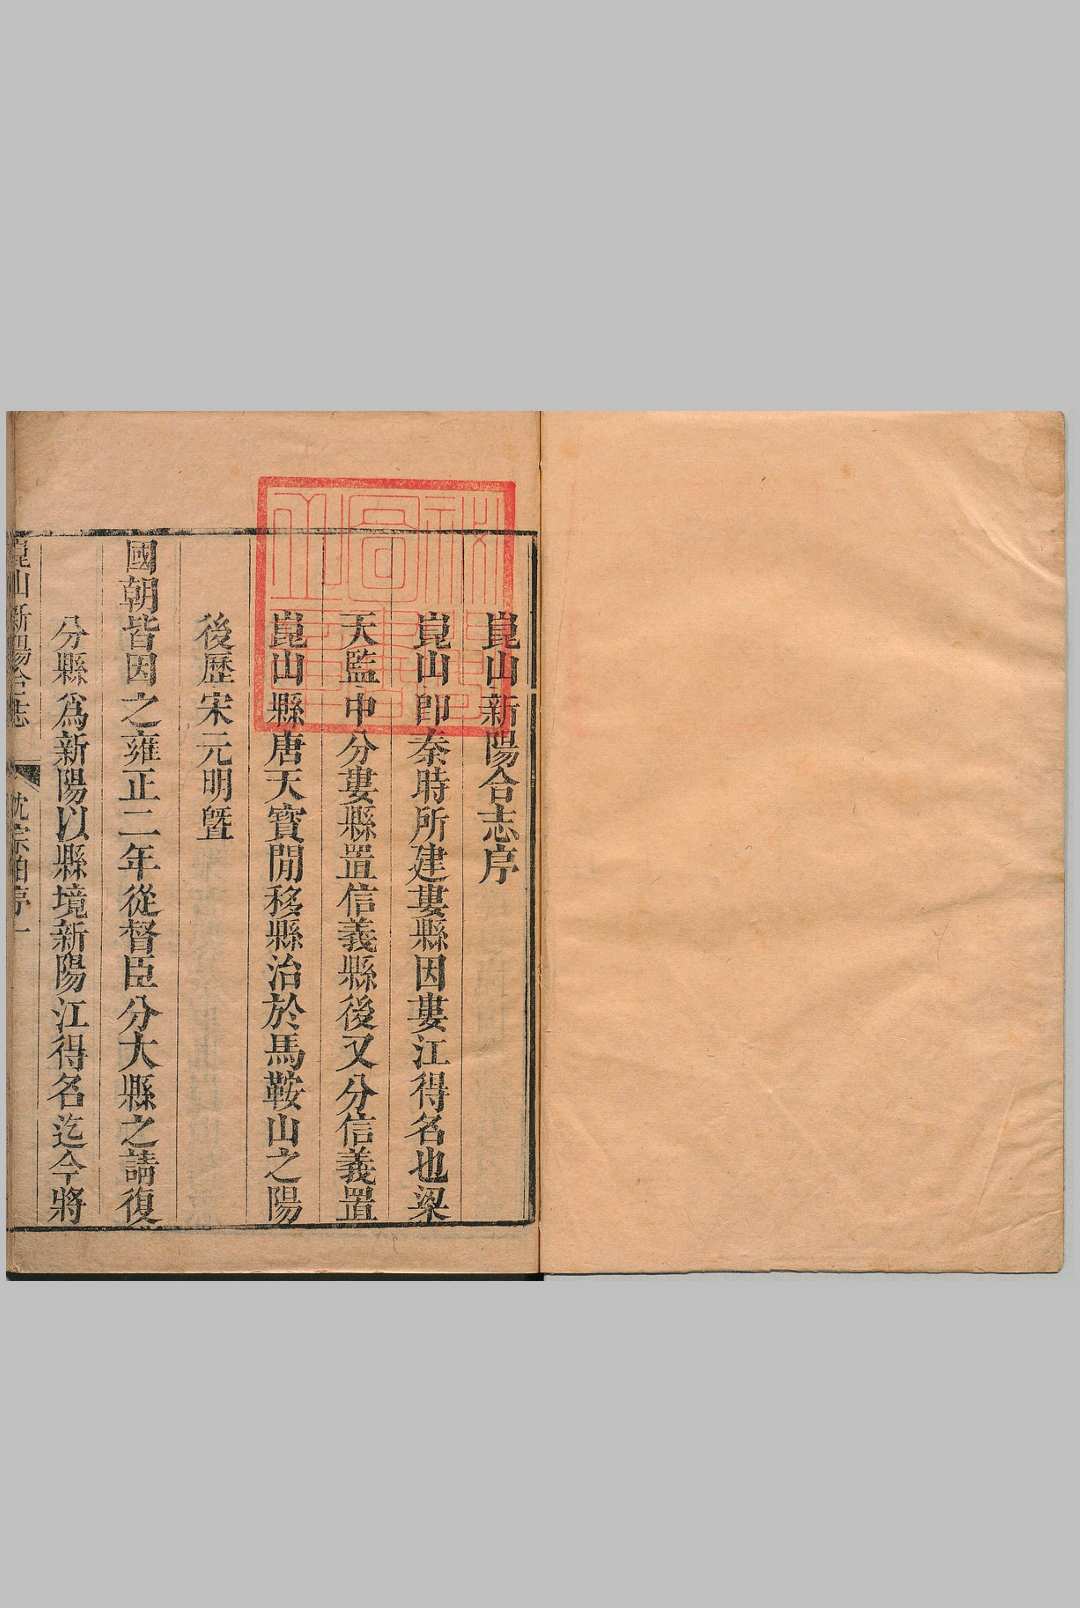 崑山新陽合志序
崑山卽秦時所建婁縣因婁江得名也梁
天監中分婁縣置信義縣後又分信義置
崑山縣唐天寳閒移縣治於馬鞍山之陽
後歷宋元明曁
國朝皆因之雍正二年從督臣分大縣之請復
分縣爲新陽以縣境新陽江得名迄今將
崑山新陽合志
沈宗相序一